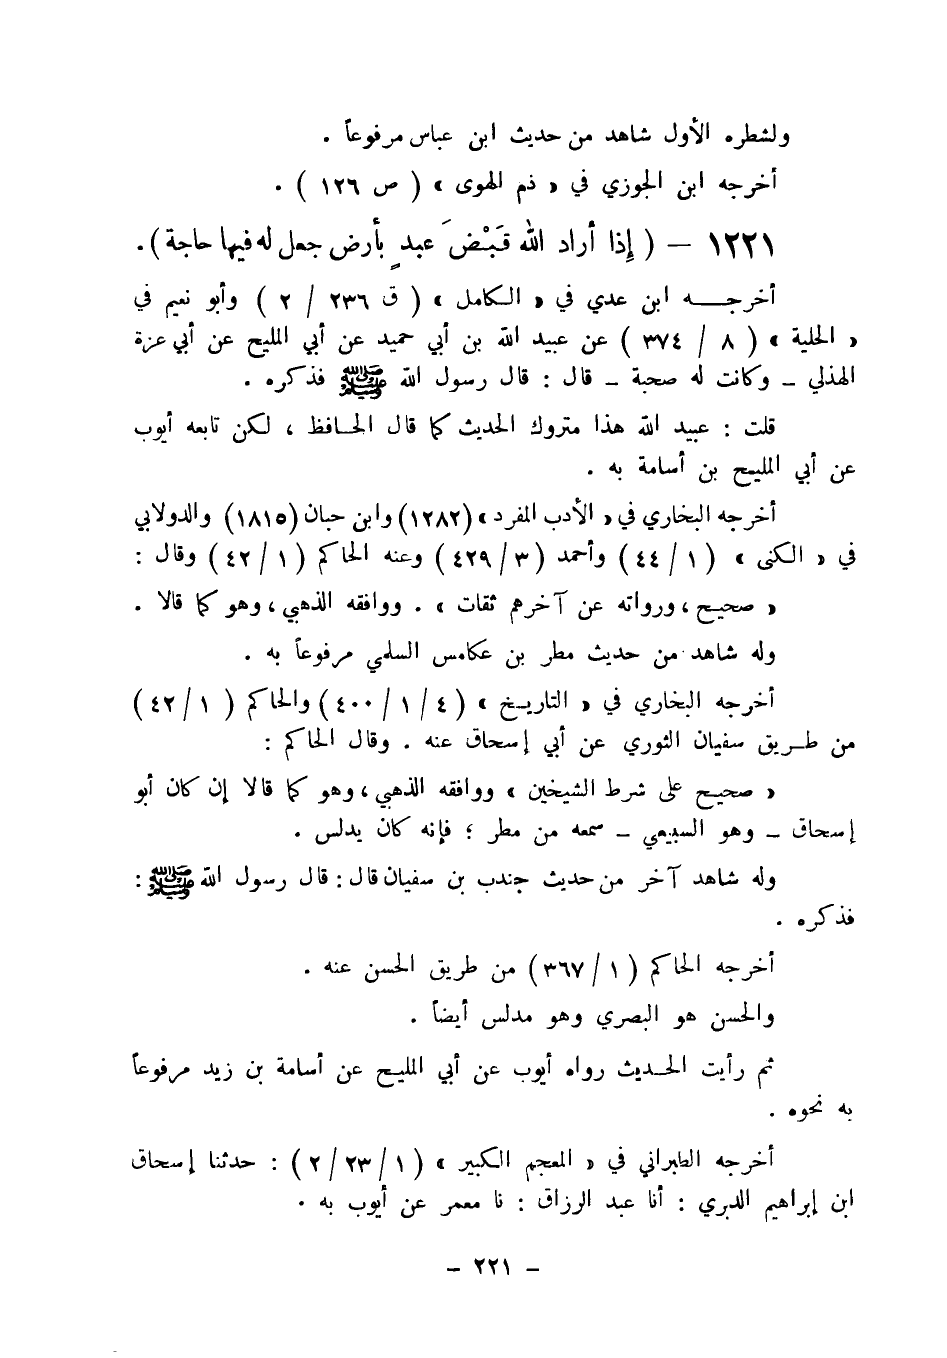 ولشطره الأول شاهد من حديث ابن عباس مرفوعاً .
أخرجه ابن الجوزي في « ذم الهوى » ( ص ١٢٦ ) .
١٢٢١ – ( إِذا أراد الله قَبْضَ عبدٍ بأرض جعل له فيها حاجة ) .
أخرجـــه ابن عدي في « الـكامل » ( ق ٢٣٦ / ٢ ) وأبو نعيم في
« الحلية » ( ٨ / ٣٧٤ ) عن عبيد الله بن أبي حميد عن أبي المليح عن أبي عزة
الهذلي ــ وكانت له صحبة ــ قال : قال رسول الله ﷺ فذكره .
قلت : عبيد الله هذا متروك الحديث كما قال الحــافظ ، لـكن تابعه أيوب
عن أبي المليـح بن أسامة به .
أخرجه البخاري في « الأدب المفرد » (١٢٨٢) وابن حبان (١٨١٥) والدولابي
في « الـكنى » ( ١ / ٤٤ ) وأحمد ( ٣ / ٤٢٩ ) وعنه الحاكم ( ١ / ٤٢ ) وقال :
« صحيـح ، ورواته عن آخرهم ثقات » . ووافقه الذهبي ، وهو كما قالا .
وله شاهد من حديث مطر بن عكامس السلمي مرفوعاً به .
أخرجه البخاري في « التاريـخ » ( ٤ / ١ / ٤٠٠ ) والحاكم ( ١ / ٤٢ )
من طـريق سفيان الثوري عن أبي إسحاق عنه . وقال الحاكم :
« صحيـح على شرط الشيخين » ووافقه الذهبي ، وهو كما قالا إن كان أبو
إسحاق ــ وهو السبيعي ــ سمعه من مطر ؛ فإنه كان يدلس .
وله شاهد آخر من حديث جندب بن سفيان قال : قال رسول الله ﷺ :
فذكره .
أخرجه الحاكم ( ١ / ٣٦٧ ) من طريق الحسن عنه .
والحسن هو البصري وهو مدلس أيضاً .
ثم رأيت الحـديث رواه أيوب عن أبي المليـح عن أسامة بن زيد مرفوعاً
به نحوه .
أخرجه الطبراني في « المعجم الكبير » ( ١ / ٢٣ / ٢ ) : حدثنا إسحاق
ابن إبراهيم الدبري : أنا عبد الرزاق : نا معمر عن أيوب به .
– ٢٢١ –